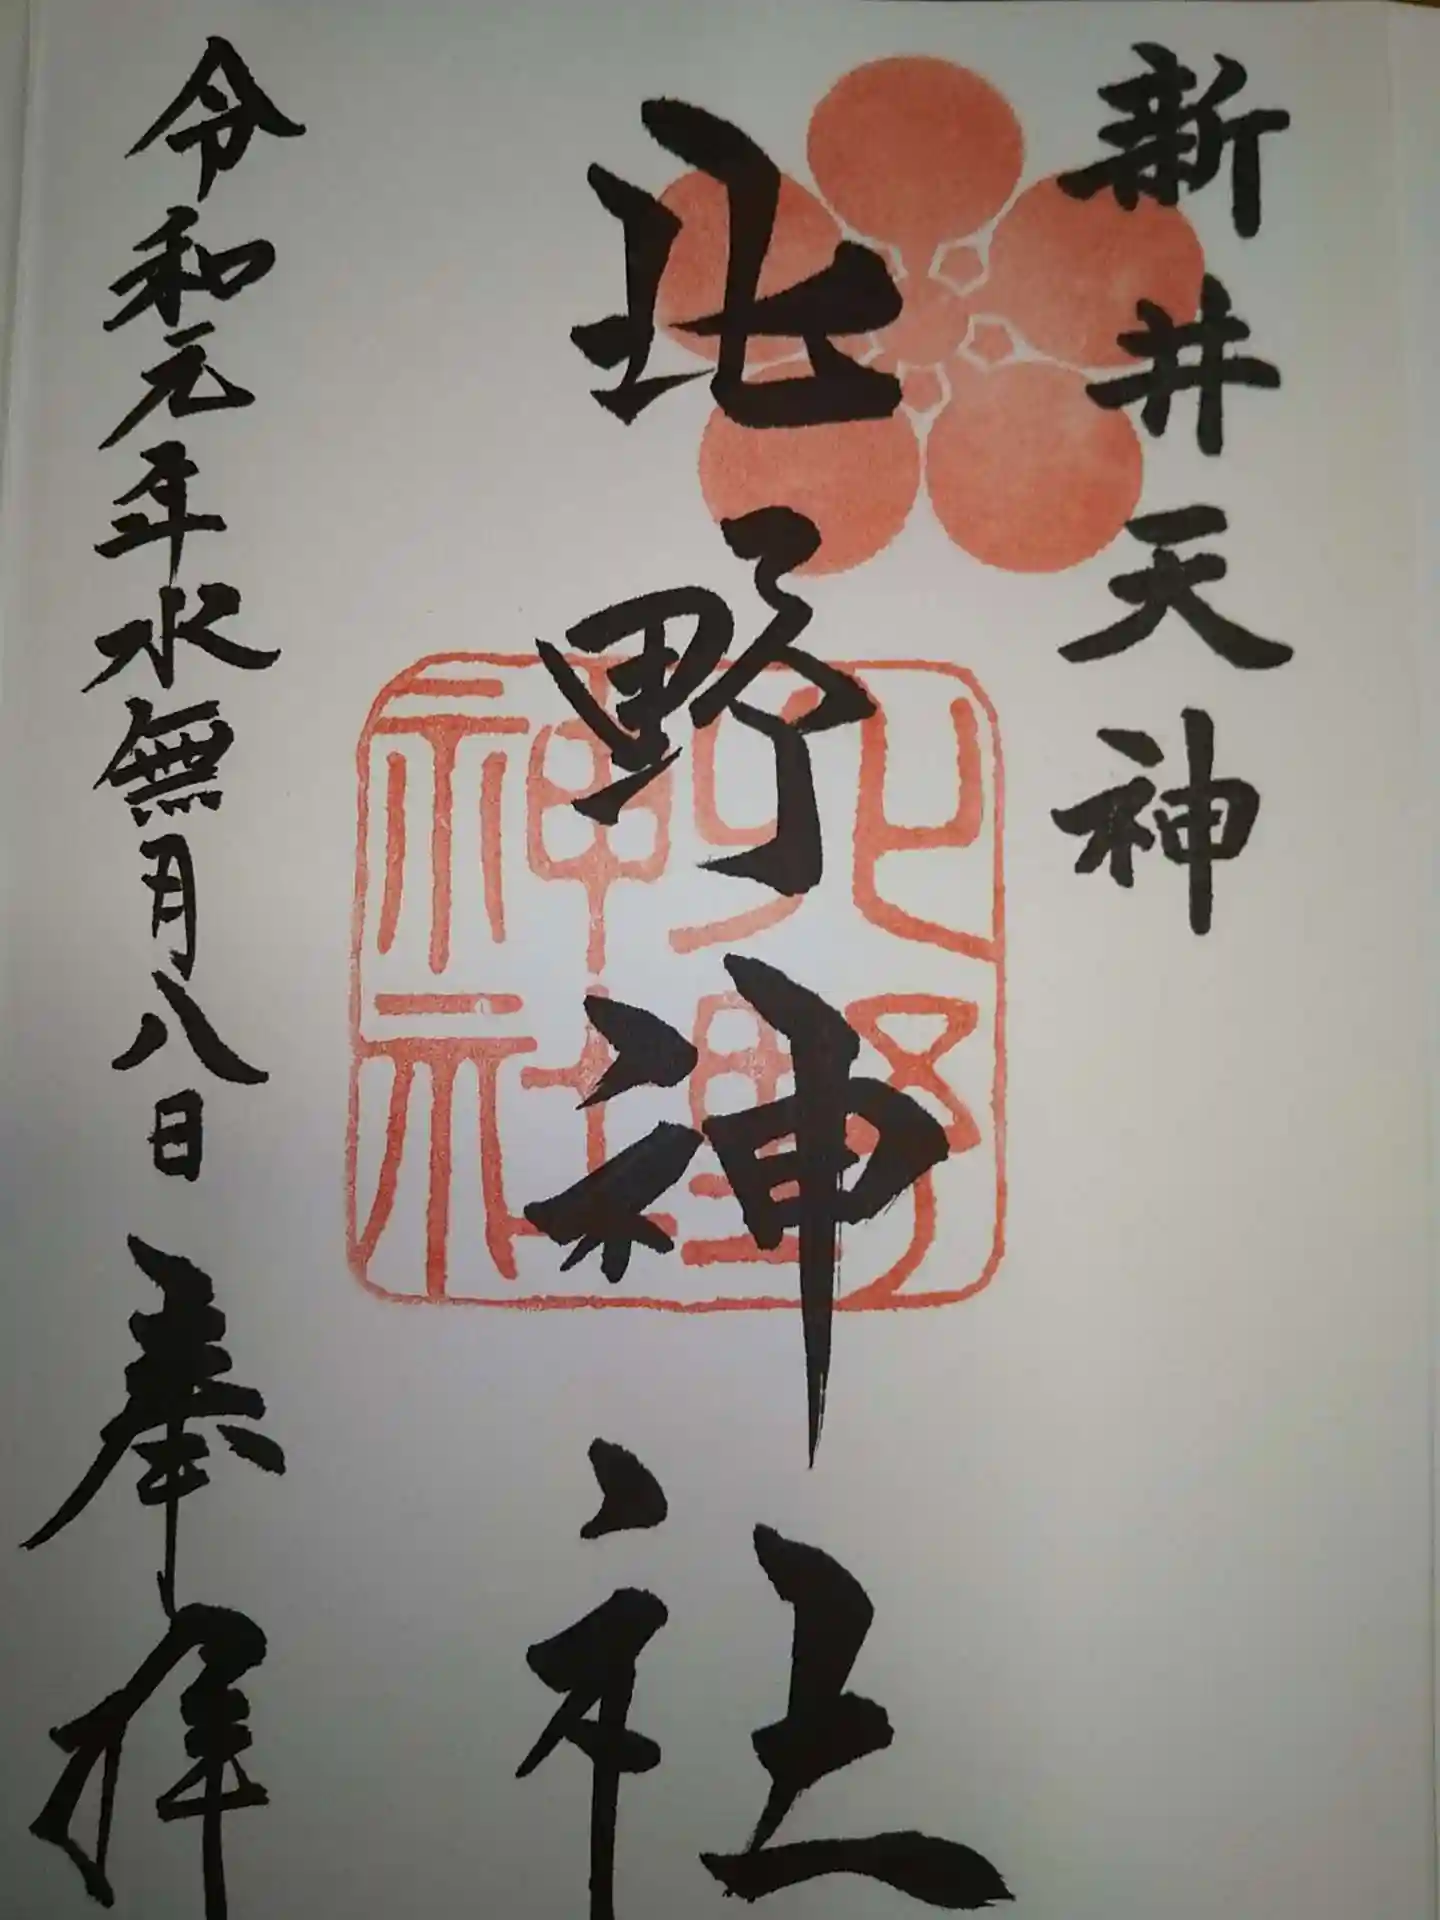 新井天神
北野神社
北野
神社
令和元年水無月八日 奉拝